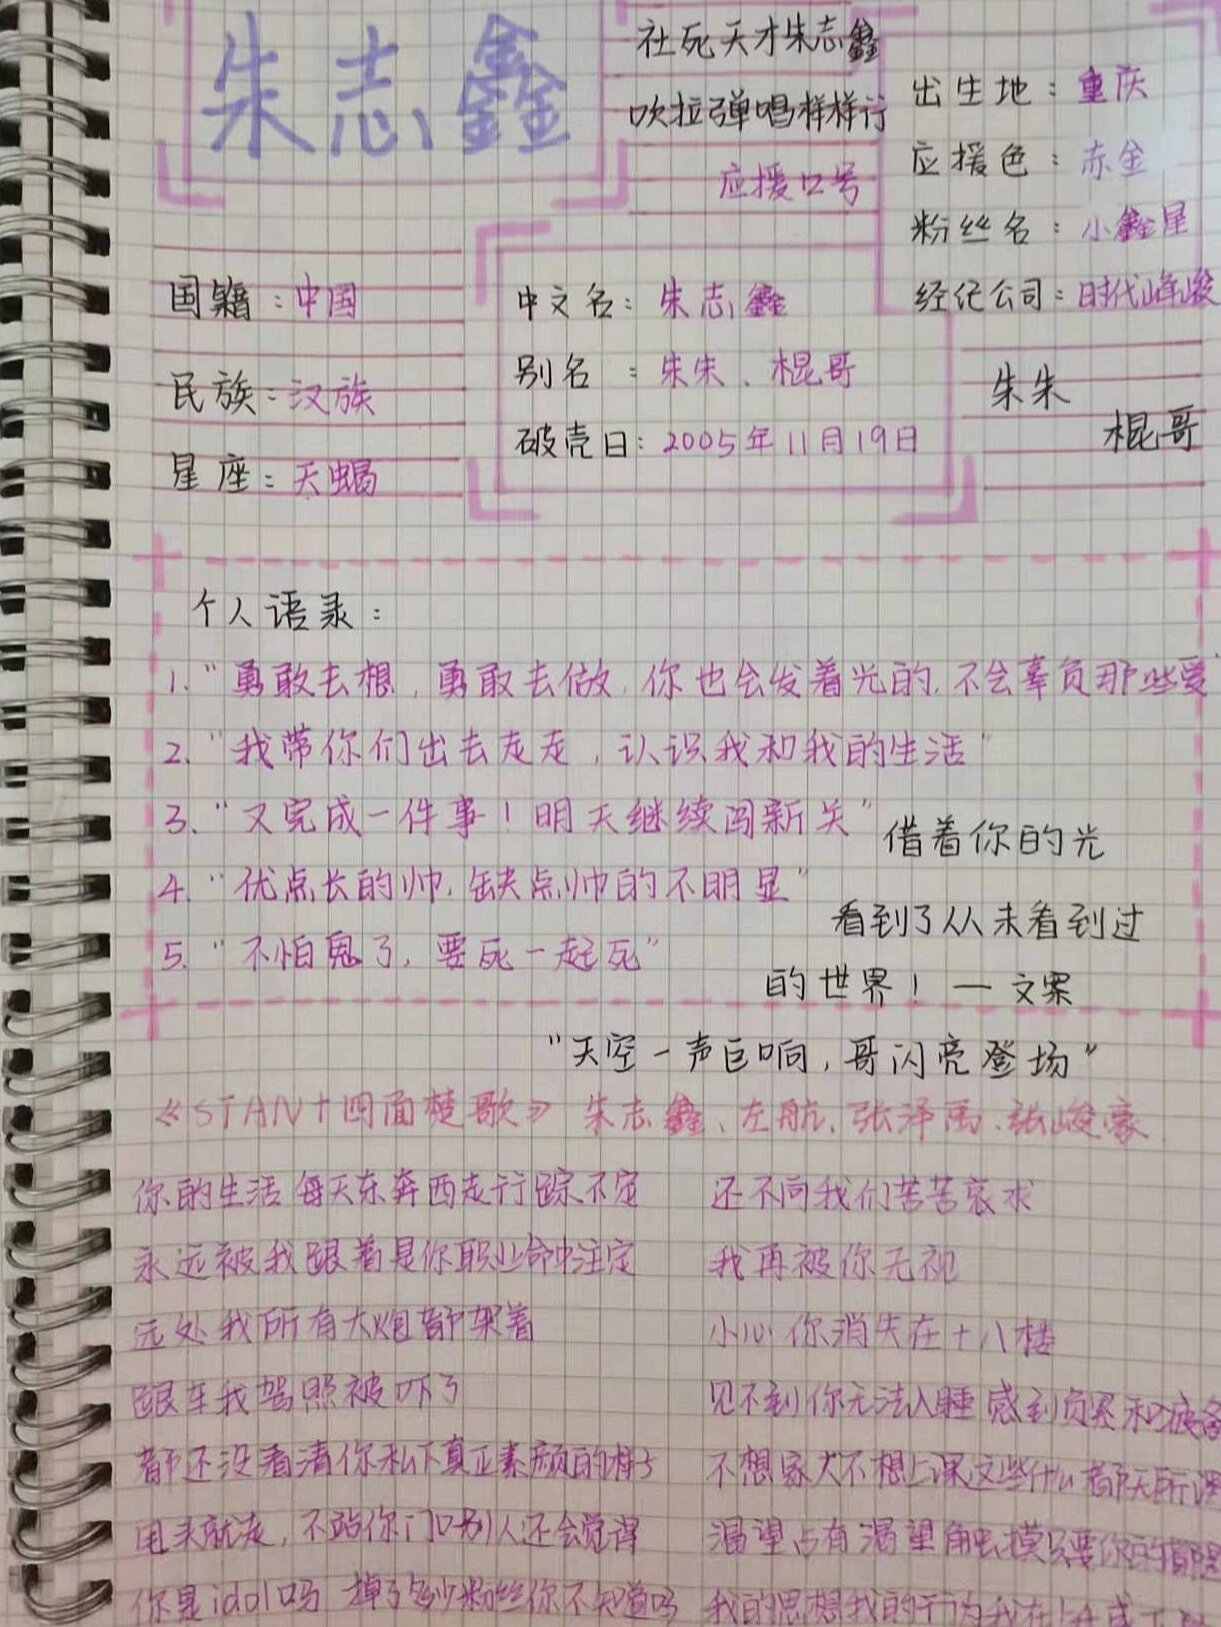 朱志鑫
社死天才朱志鑫
吹拉弹唱样样行
应援口号
出生地：重庆
应援色：赤金
粉丝名：小鑫星
经纪公司：时代峰峻
国籍：中国
民族：汉族
星座：天蝎
中文名：朱志鑫
别名：朱朱、棍哥
破壳日：2005年11月19日
朱朱
棍哥
个人语录：
1."勇敢去想，勇敢去做，你也会发着光的，不会辜负那些爱"
2."我带你们出去走走，认识我和我的生活"
3."又完成一件事！明天继续闯新关"
4."优点长的帅，缺点帅的不明显"
5."不怕鬼了，要死一起死"
借着你的光
看到了从未看到过
的世界！—文案
"天空一声巨响，哥闪亮登场"
《STAN+四面楚歌》朱志鑫、左航、张泽禹、张峻豪
你的生活 每天东奔西走行踪不定
永远被我跟着是你职业命中注定
远处我所有大炮都架着
跟车我驾照被吓了
都还没看清你私下真正素颜的样子
甩头就走，不站你门口别人还会觉得
你是idol吗 掉了多少粉丝你不知道吗
还不同我们苦苦哀求
我再被你无视
小心你消失在十八楼
见不到你无法入睡 感到负累和疲惫
不想家犬不想上课这些什么都无所谓
渴望占有渴望触摸只要你的
我的思想我的行为我在